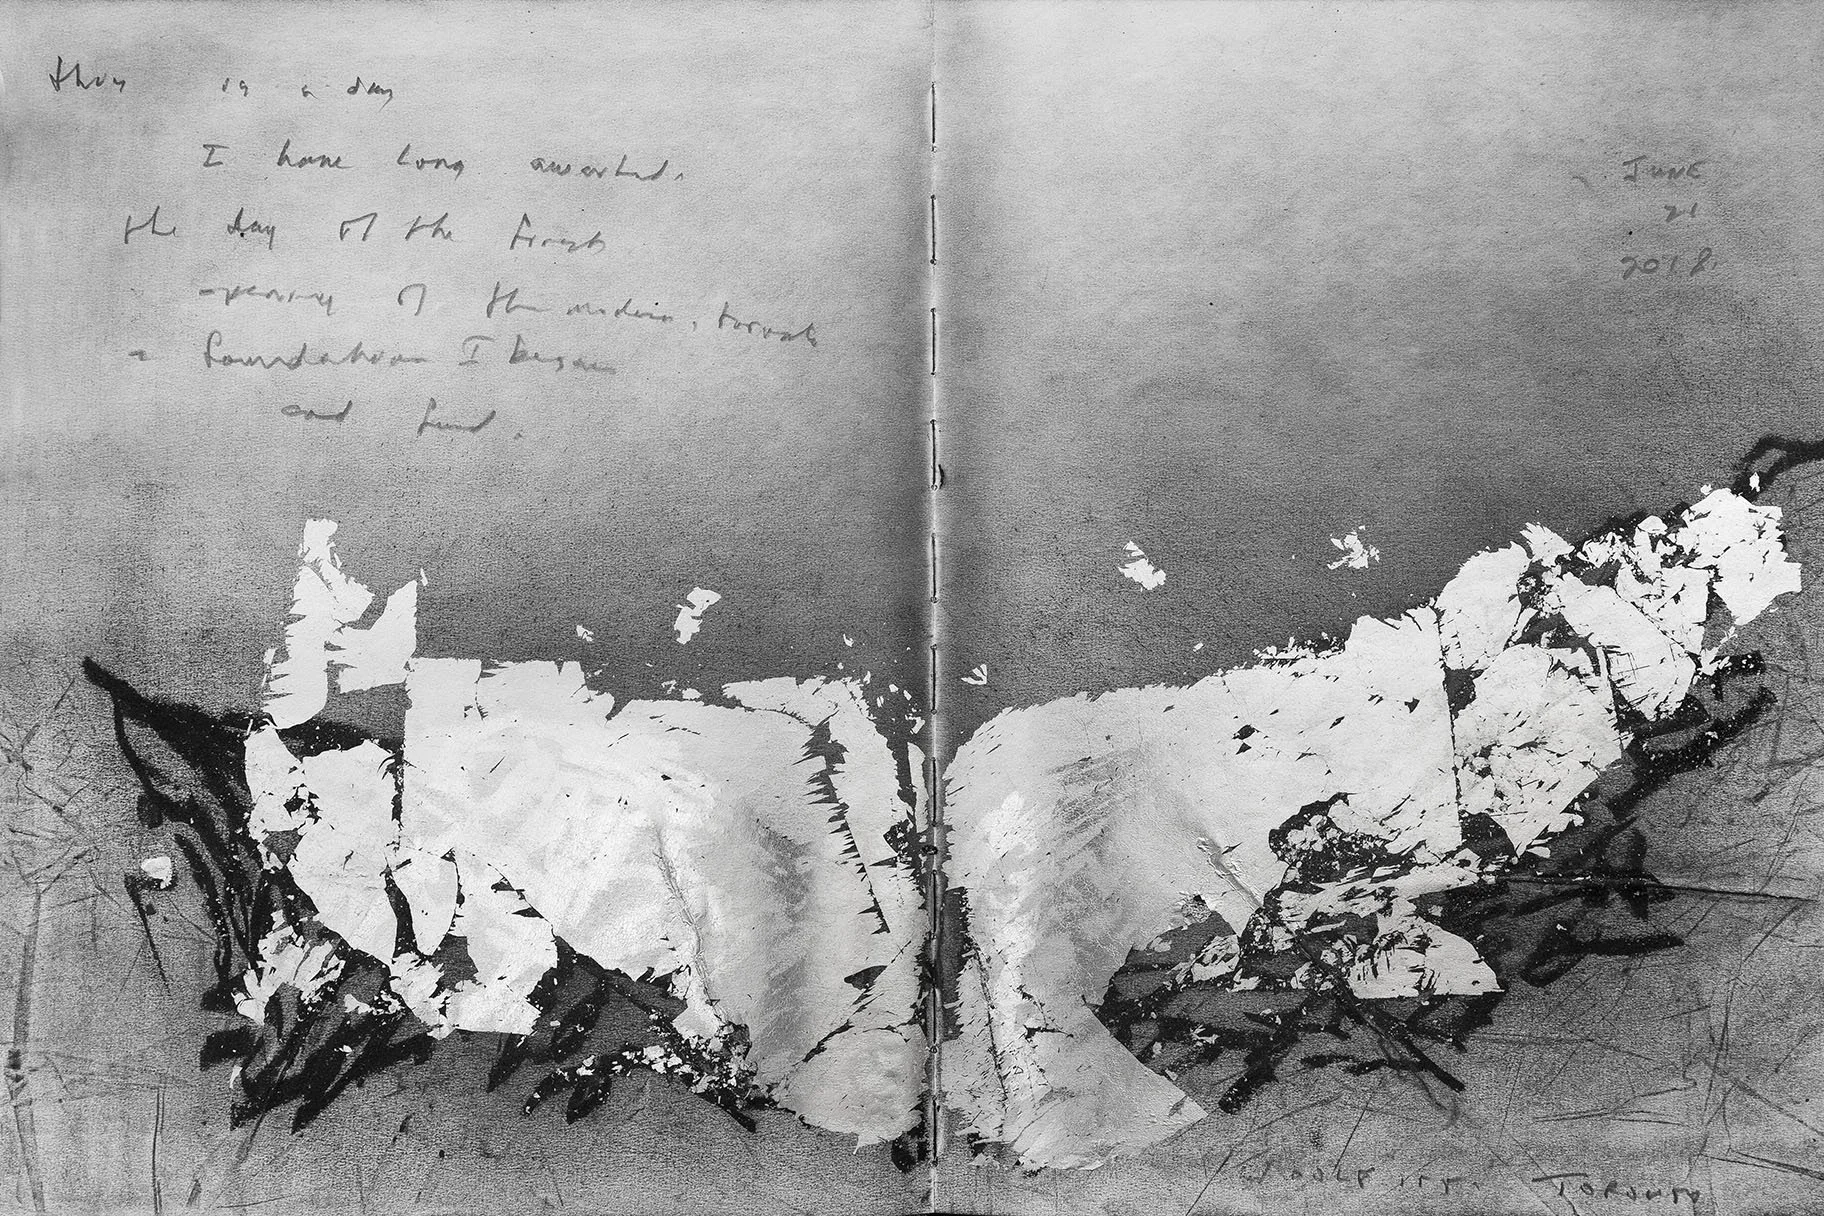 this is a day
I have long awaited.
the day of the first
opening of the modern, forest
a foundation I began
and fund.
JUNE
21
2018
TORONTO